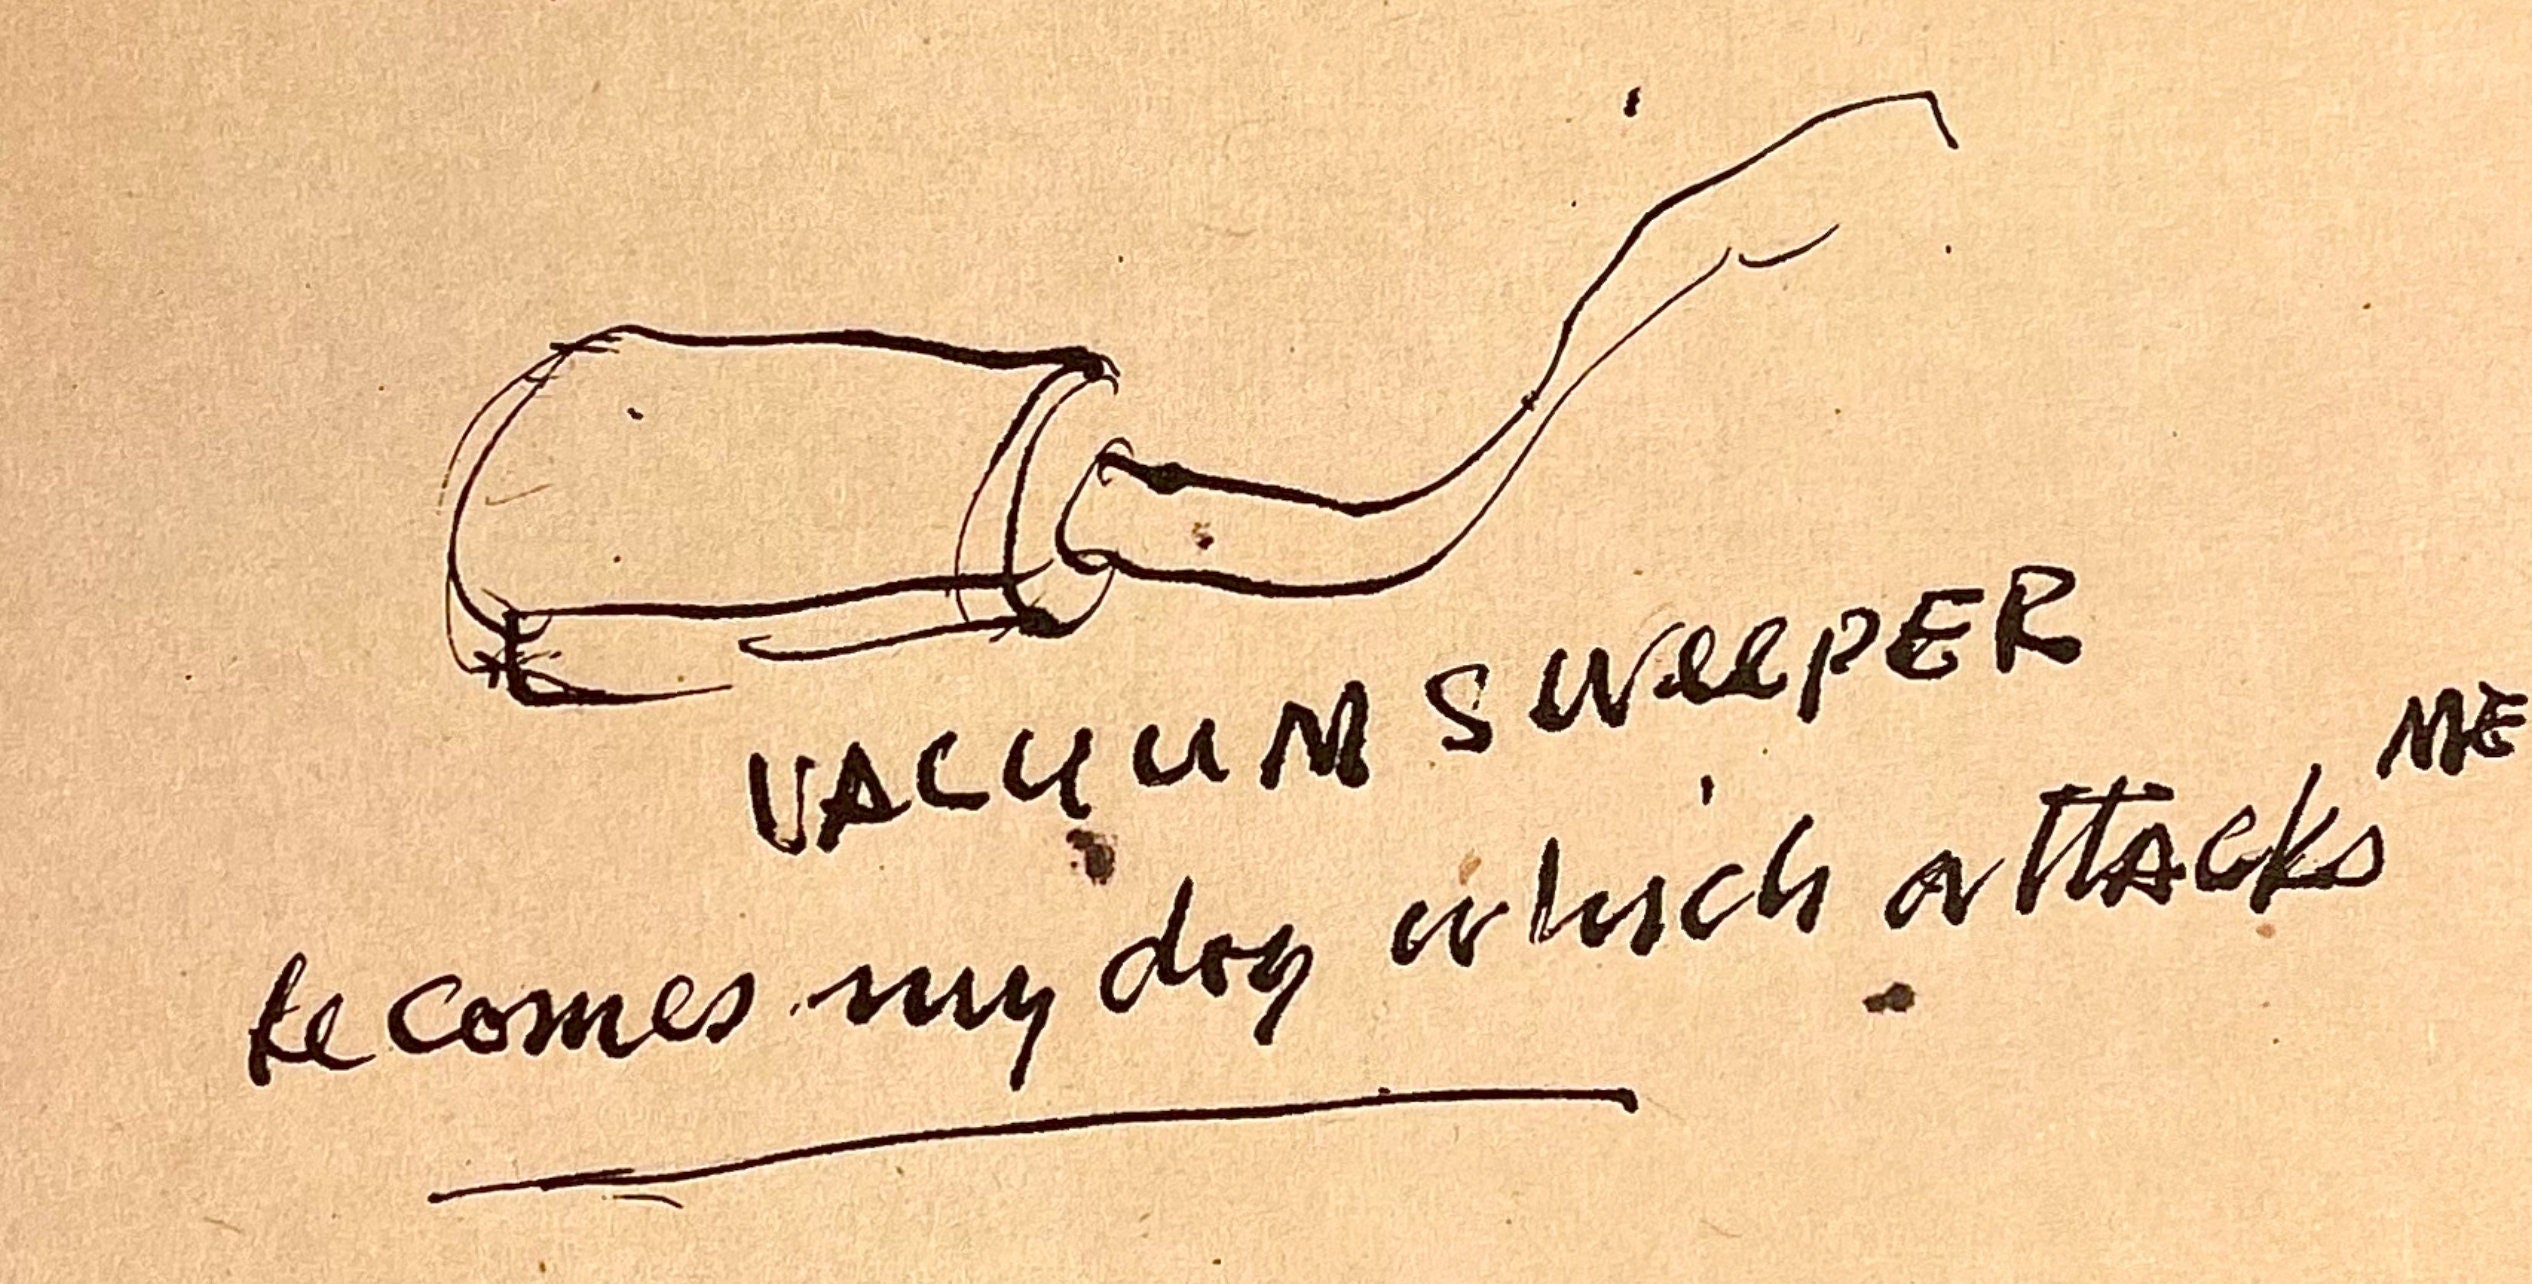 VACUUM SWeepER
becomes my dog which attacks ME